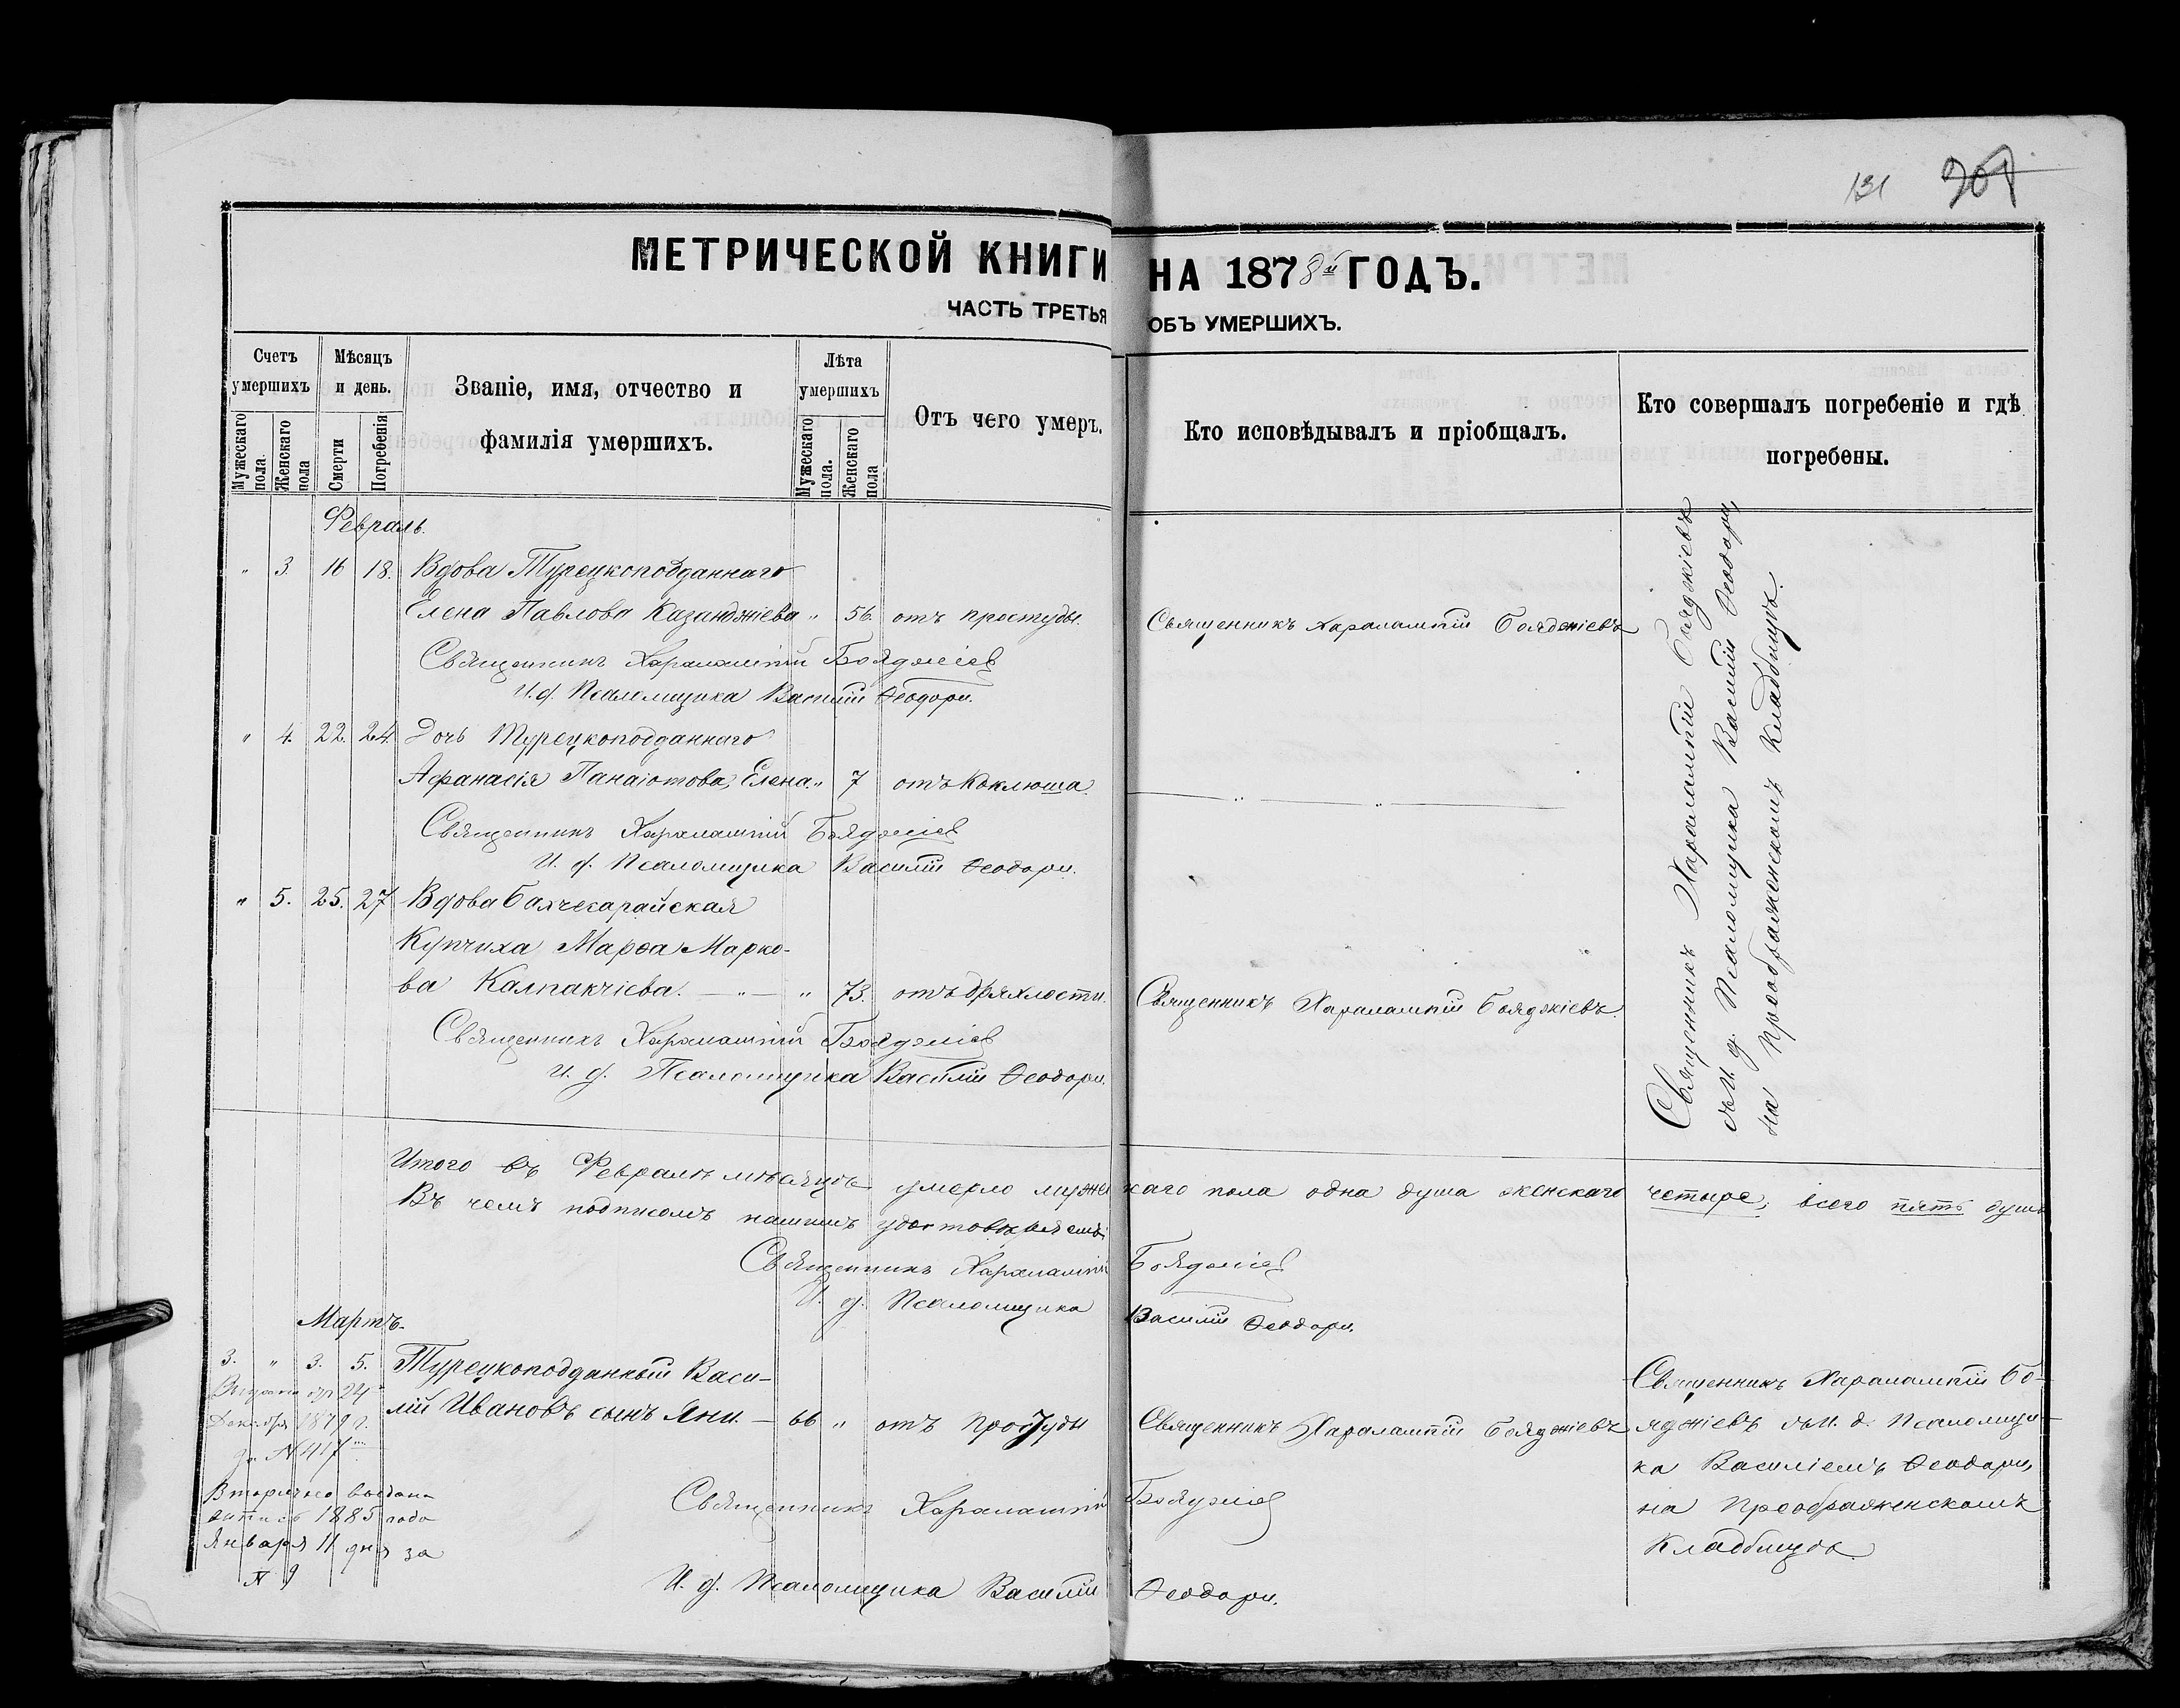 131 201
МЕТРИЧЕСКОЙ КНИГИ НА 1878й ГОДЪ.
ЧАСТЬ ТРЕТЬЯ ОБЪ УМЕРШИХЪ.
Счетъ умершихъ
Мужескаго пола.
Женскаго пола
Мѣсяцъ и день.
Смерти
Погребенія
Званіе, имя, отчество и
фамилія умершихъ.
Лѣта умершихъ
Мужескаго пола.
Женскаго пола
Отъ чего умеръ.
Кто исповѣдывалъ и пріобщалъ.
Кто совершалъ погребеніе и гдѣ
погребены.
Февраль.
" 3. 16 18. Вдова Турецкоподданнаго
Елена Павлова Казанджіева " 56. отъ простуды. Священникъ Харалампій Бояджіевъ
Священникъ Харалампій Бояджіев
И. д. Псаломщика Василій Ѳеодори.
" 4. 22. 24. Дочь Турецкоподданнаго
Афанасія Панаіотова, Елена. " 7 отъ Коклюша. — " — " —
Священникъ Харалампій Бояджіев
И. д. Псаломщика Василій Ѳеодори.
" 5. 25. 27 Вдова Бахчесарайская
Купчиха Марѳа Марко-
ва Калпакчіева. — " — " 73. отъ дряхлости. Священникъ Харалампій Бояджіевъ.
Священникъ Харалампій Бояджіев
И. д. Псаломщика Василій Ѳеодори.
Священникъ Харалампій Бояджіевъ
съ И. д. Псаломщика Василій Ѳеодори,
на Преображенскомъ Кладбищѣ.
Итого въ Февралѣ мѣсяцѣ умерло мужескаго пола одна душа женскаго четыре, всего пять душъ
Въ чемъ подписомъ нашимъ удостовѣряемъ:
Священникъ Харалампій Бояджіев
И. д. Псаломщика Василій Ѳеодори.
Мартъ.
3. " 3. 5. Турецкоподданный Васи-
лій Ивановъ сынъ Яни. — 66 " отъ Простуды Священникъ Харалампій Бояджіевъ
Священникъ Харалампій Бо-
яджіевъ съ И. д. Псаломщи-
ка Василіемъ Ѳеодори,
на Преображенскомъ
Кладбищѣ.
24
Декабря 1879 г.
за № 417
Вторично выдана
1885 года
Января 11 дня за
№ 9
Священникъ Харалампій Бояджіев
И. д. Псаломщика Василій Ѳеодори.